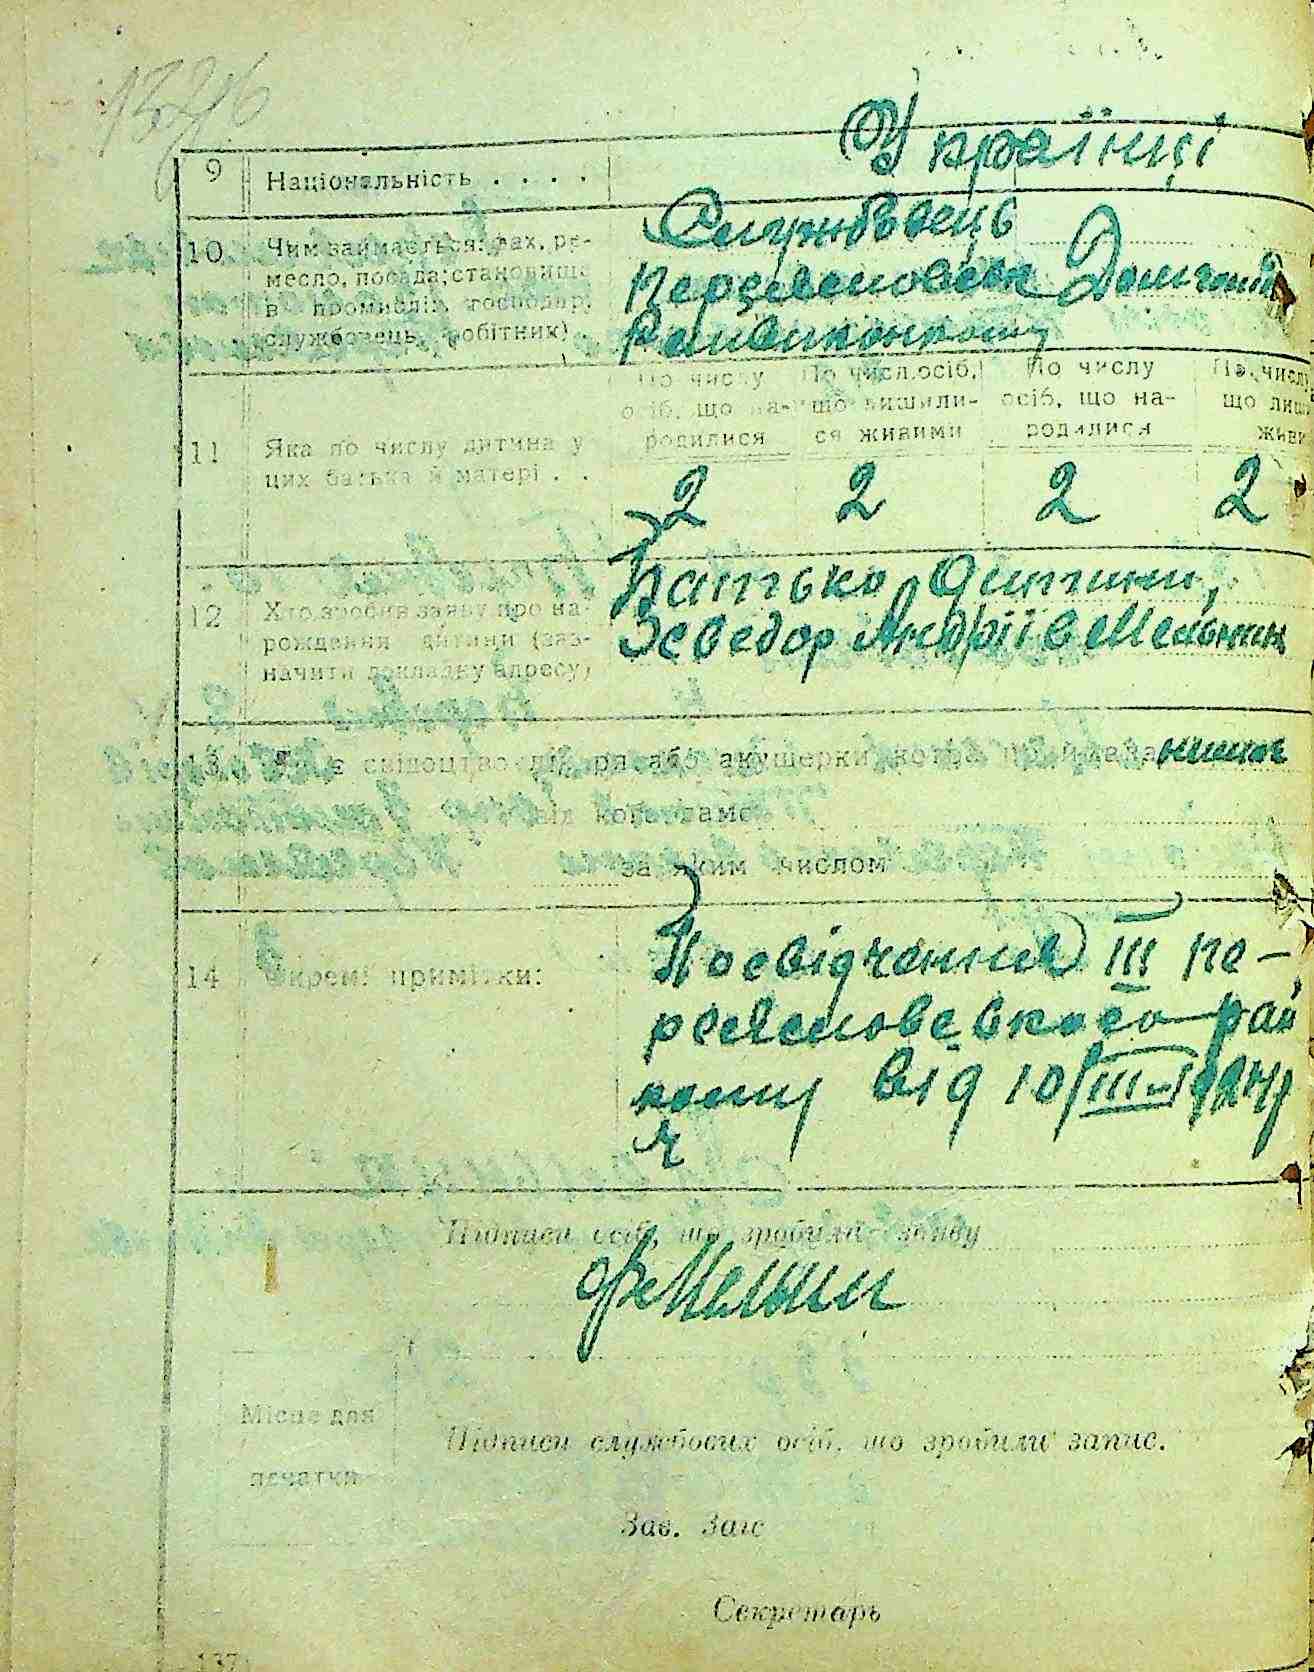 9 Національність . . . .
Українці
10 Чим займається: фах, ре-
месло, посада; становище
в промислі, господар,
службовець, робітник)
Службовець
11 Яка по числу дитина у
цих батька й матері . .
По числу осіб, що на-родилися
По числ. осіб, що лишили-ся живими
По числу осіб, що на-родилися
По числу що лиши живи
2 2 2 2
12 Хто зробив заяву про на-
рождення дитини (заз-
начити докладну адресу)
Батько дитини,
Андріїв Мельник
13 Як є свідоцтво лікаря або акушерки, котра приймала
від кого саме
за яким числом
14 Окремі примітки:
Посвідчення III пе-
рай
кому від 10/III-1924
Підписи осіб, що зробила заяву
Ф Мельник
Місце для
печатки
Підписи службових осіб, що зробили запис.
Зав. Загс
Секретарь
137